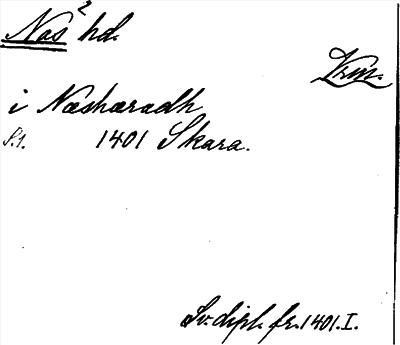 Näs² hd.
Vrm.
i Næshæradh
S.1. 1401 Skara.
Sv. dipl. fr. 1401. I.